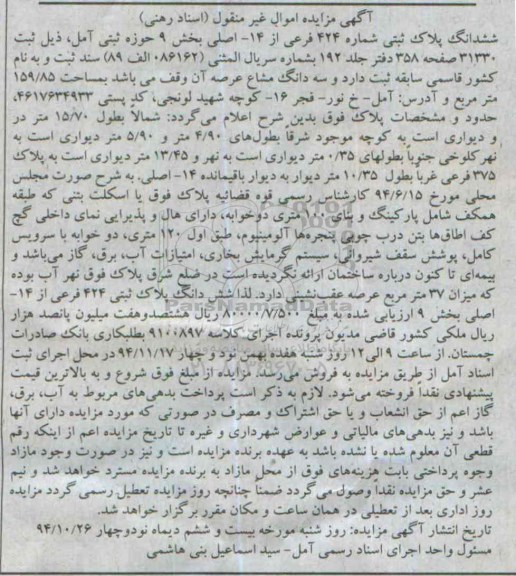 آگهی مزایده اموال غیر منقول (اسناد رهنی)
ششدانگ پلاک ثبتی شماره ۴۲۴ فرعی از ۱۴- اصلی بخش ۹ حوزه ثبتی آمل، ذیل ثبت
۳۱۳۳۰ صفحه ۳۵۸ دفتر جلد ۱۹۲ بشماره سریال المثنی (۰۸۶۱۶۲ الف ۸۹) سند ثبت و به نام
کشور قاسمی سابقه ثبت دارد و سه دانگ مشاع عرصه آن وقف می باشد بمساحت ۱۵۹/۸۵
متر مربع و آدرس: آمل- خ نور- فجر ۱۶- کوچه شهید لونجی، کد پستی ۴۶۱۷۶۳۴۹۳۳،
حدود و مشخصات پلاک فوق بدین شرح اعلام می‌گردد: شمالاً بطول ۱۵/۷۰ متر در
و دیواری است به کوچه موجود شرقاً بطول‌های ۴/۹۰ متر و ۵/۹۰ متر دیواری است به
نهر کلوخی جنوباً بطولهای ۰/۳۵ متر دیواری است به نهر و ۱۳/۴۵ متر دیواری است به پلاک
۳۷۵ فرعی غرباً بطول ۱۰/۳۵ متر دیوار به دیوار باقیمانده ۱۴- اصلی. به شرح صورت مجلس
محلی مورخ ۹۴/۶/۱۵ کارشناس رسمی قوه قضائیه پلاک فوق با اسکلت بتنی که طبقه
همکف شامل پارکینگ و بنای ۱۰۰ متری دوخوابه، دارای هال و پذیرایی نمای داخلی گچ
کف اطاق‌ها بتن درب چوبی پنجره‌ها آلومینیوم، طبق اول ۱۲۰ متری، دو خوابه با سرویس
کامل، پوشش سقف شیروانی، سیستم گرمایش بخاری، امتیازات آب، برق، گاز می‌باشد و
بیمه‌ای تا کنون درباره ساختمان ارائه نگردیده است در ضلع شرق پلاک فوق نهر آب بوده
که میزان ۳۷ متر مربع عرصه عقب‌نشینی دارد. لذا شش دانگ پلاک ثبتی ۴۲۴ فرعی از ۱۴-
اصلی بخش ۹ ارزیابی شده به مبلغ ریال هشتصدوهفت میلیون پانصد هزار
ریال ملکی کشور قاضی مدیون پرونده اجرای کلاسه ۹۱۰۰۸۹۷ بطلبکاری بانک صادرات
چمستان. از ساعت ۹ الی ۱۲ روز شنبه هفده بهمن نود و چهار ۹۴/۱۱/۱۷ در محل اجرای ثبت
اسناد آمل از طریق مزایده به فروش می‌رسد. مزایده از مبلغ فوق شروع و به بالاترین قیمت
پیشنهادی نقداً فروخته می‌شود. لازم به ذکر است پرداخت بدهی‌های مربوط به آب، برق،
گاز اعم از حق انشعاب و یا حق اشتراک و مصرف در صورتی که مورد مزایده دارای آنها
باشد و نیز بدهی‌های مالیاتی و عوارض شهرداری و غیره تا تاریخ مزایده اعم از اینکه رقم
قطعی آن معلوم شده یا نشده باشد به عهده برنده مزایده است و نیز در صورت وجود مازاد
وجوه پرداختی بابت هزینه‌های فوق از محل مازاد به برنده مزایده مسترد خواهد شد و نیم
عشر و حق مزایده نقداً وصول می‌گردد ضمناً چنانچه روز مزایده تعطیل رسمی گردد مزایده
روز اداری بعد از تعطیلی در همان ساعت و مکان مقرر برگزار خواهد شد.
تاریخ انتشار آگهی مزایده: روز شنبه مورخه بیست و ششم دیماه نودوچهار ۹۴/۱۰/۲۶
مسئول واحد اجرای اسناد رسمی آمل- سید اسماعیل بنی هاشمی